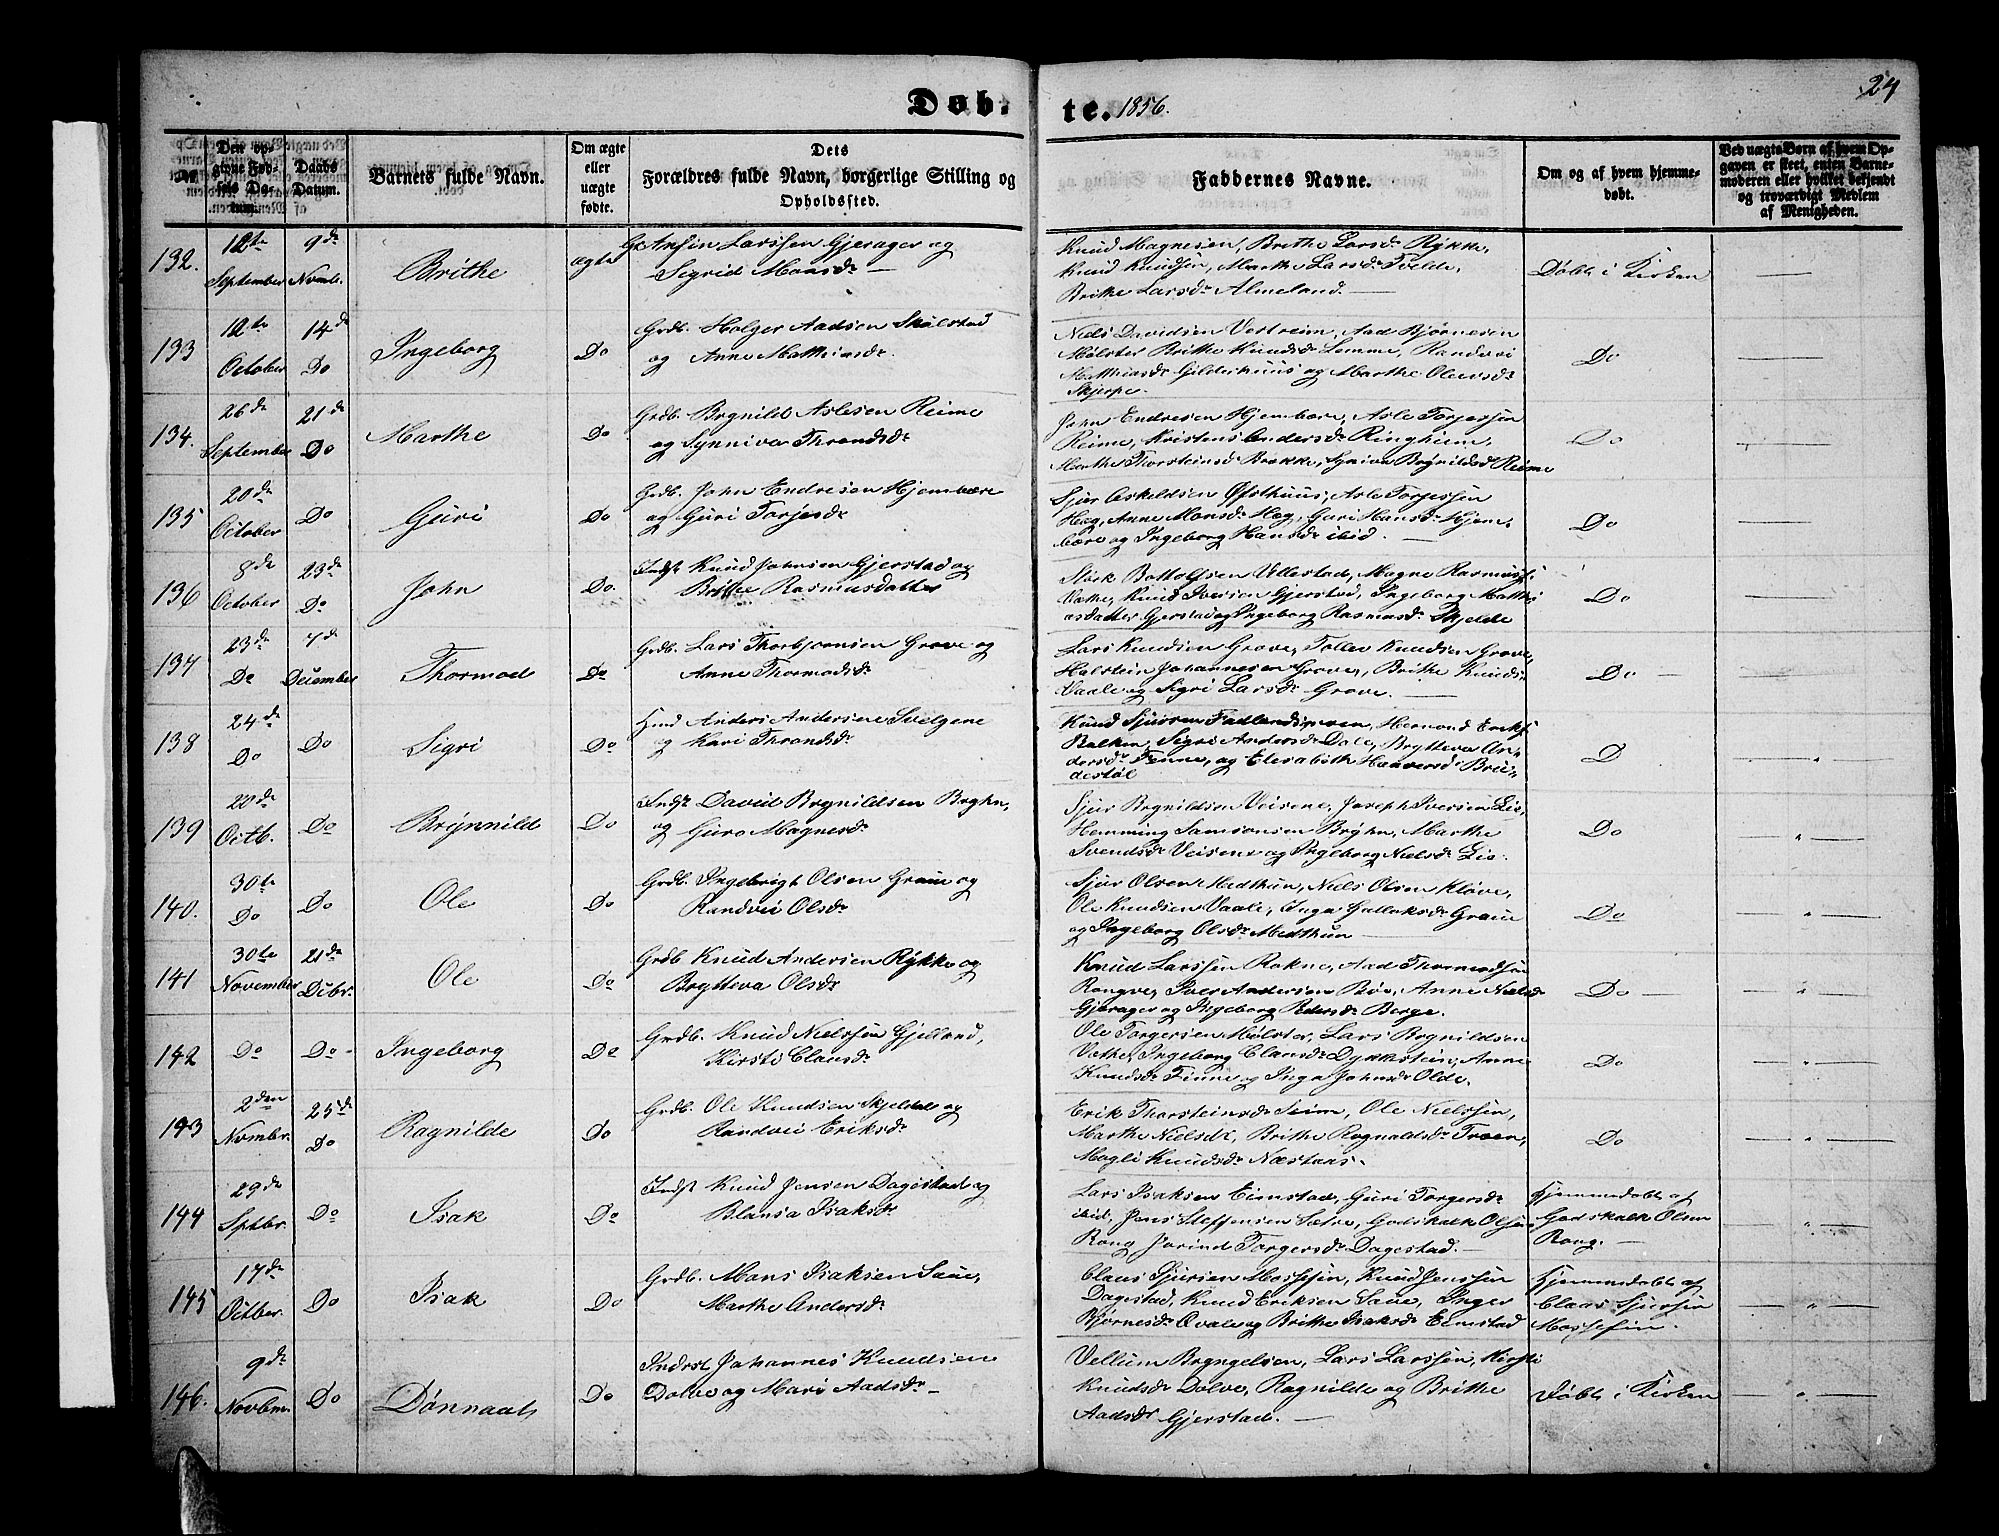 Døb-
te. 1856.
24
No
Den op-
givne Fød-
sels Da-
tum.
Daabs
Datum.
Barnets fulde Navn.
Om ægte
eller
uægte
fødte.
Dets
Forældres fulde Navn, borgerlige Stilling og
Opholdssted.
Faddernes Navne.
Om og af hvem hjemme-
døbt.
Ved uægte Børn af hvem Op-
gaven er skeet, enten Barne-
moderen eller hvilket bekjendt
og troværdigt Medlem
af Menigheden.
132.
12te
September
9de
Novmb.
Brithe
ægte
Ansin Larssen Gjerager og
Sigrid Monsdr
Knud Magnesen, Brithe Larsdr Rykke,
Knud Knudsen, Marthe Larsdr Tvelde,
Brithe Larsdr Almeland.
Døbt i Kirken
133
12te
October
14de
Do
Ingeborg
Do
Grdb. Holger Aadsen Skulstad
og Anne Mathiasdr
Niels Davidsen Vestreim, Aad Bjørnesen
Mølster Brithe Knudsdr Lemme, Randvei
Matthiasdr Gilderhuus og Marthe Olevsdr
Skjerpe.
Do
134.
26de
September
21de
Do
Marthe
Do
Grdb. Brynild Aslesen Reime
og Synniva Throndsdr
John Endresen Hjembære, Asle Torjessen
Reime, Kristens Andersdr Ringheim,
Marthe Thorsteinsd Brække, Syniva Brynildsd Reime
Do
135
20de
October
Do
Guri
Do
Grdb. John Endresen Hjembære
og Guri Torjesdr
Sjur Askeldsen Øfsthuus, Asle Torjessen
Hæg, Anne Monsdr Hæg, Guri Hansdr Hjem-
bære og Ingeborg Hansdr ibid.
Do
136
8de
October
23de
Do
John
Do.
Indst Knud Johnsen Gjerstad og
Brithe Rasmusdatter
Størk Bottolfsen Ullestad, Magne Rasmuss.
Væthe, Knud Iversen Gjerstad, Ingeborg Matthi
asdatter Gjerstad og Ingeborg Rasmusdr Skjelde
Do
137
23de
Do
7de
December
Thormod
Do
Grdb. Lars Thorbjørnsen Grove og
Anne Thormodsdr
Lars Knudsen Grove, Tollev Knudsen Grove,
Halstein Johannesen Grove, Brithe Knuds-
Vaale og Sigri Larsdr Grove.
Do
138
24de
Do
Do
Sigri
Do
Huusd Anders Andersen Svelgene
og Kari Throndsdr
Knud Sjursen Fadlandsgeren, Hermond Eriks.
Ralken, Sigri Andersdr Dale, Brytteva An-
dersdr Fenne, og Elesabeth Haaversdr Bru-
destøl
D
139
20de
Octb.
Do
Brynnild
Do
Indst David Brynildsen Bryhn,
og Guro Magnesdr
Sjur Brynildsen Veisene, Joseph Iversen Lie,
Hemming Samsonsen Bryhn, Marthe
Svendsdr Veisene og Ingeborg Nielsdr Lie.
Do
140.
30te
Do
Do
Ole
Do
Grdb. Ingebrigt Olsen Graue og
Randvei Olsdr
Sjur Olsen Medthun, Niels Olsen Kløve,
Ole Knudsen Vaale, Inga Gulleksdr Graue
og Ingeborg Olsdr Medthun
Do
141
30te
November
21de
Debr.
Ole
Do
Grdb Knud Andersen Rykke og
Brytteva Olsdr
Knud Larssen Rokne, Aad Thormodsen
Rongve, Iver Andersen Bøe, Anne Nielsdr
Gjerager og Ingeborg Pedersdr Berge.
Do
142
Do
Do
Ingeborg
Do
Grdb. Knud Nielssen Gjelland,
Kirsti Claasdr
Ole Torgersen Mølster, Lars Brynildsen
Væthe, Ingeborg Claasdr Dykkstein, Anne
Knudsdr Finne og Inga Johnsdr Olde.
Do
143
2den
Novmbr.
25de
Do
Ragnilde
Do
Grdb. Ole Knudsen Skjeldal og
Randvei Eriksdr
Erik Thorsteinsdr Seim, Ole Nielssen,
Marthe Nielsdr, Brithe Rognaldsdr Troen,
Magli Knudsdr Næstaas.
Do
144
29de
Sptbr.
Do
Isak
Do
Indst Knud Jensen Dagestad og
Blansa Isaksdr
Lars Isaksen Eimstad, Guri Torgersdr
ibid, Jens Steffensen Sætre, Godskalk Olsen
Rong Jorind Torgersdr Dagestad.
Hjemmedøbt af
Godskalk Olsen
Rong.
145
17de
Octber.
Do
Isak
Do
Grdb. Mons Isaksen Saue,
Marthe Andersdr
Claas Sjursen Mossefin, Knud Jenssen
Dagestad, Knud Eriksen Save, Inger
Bjørnesdr Qvale og Brithe Isaksdr Eimstad
Hjemmedøbt af
Claas Sjursen
Mossefin.
146.
9de
Novbmr.
Do
Dønnaat
Do
Inderst Johannes Knudsen
Dolve og Mari Aadsdr
Vellum Bryngelsen, Lars Larssen, Kirsti
Knudsdr Dolve, Ragnilde og Brithe
Aadsdr Gjerstad.
Døbt i Kirken